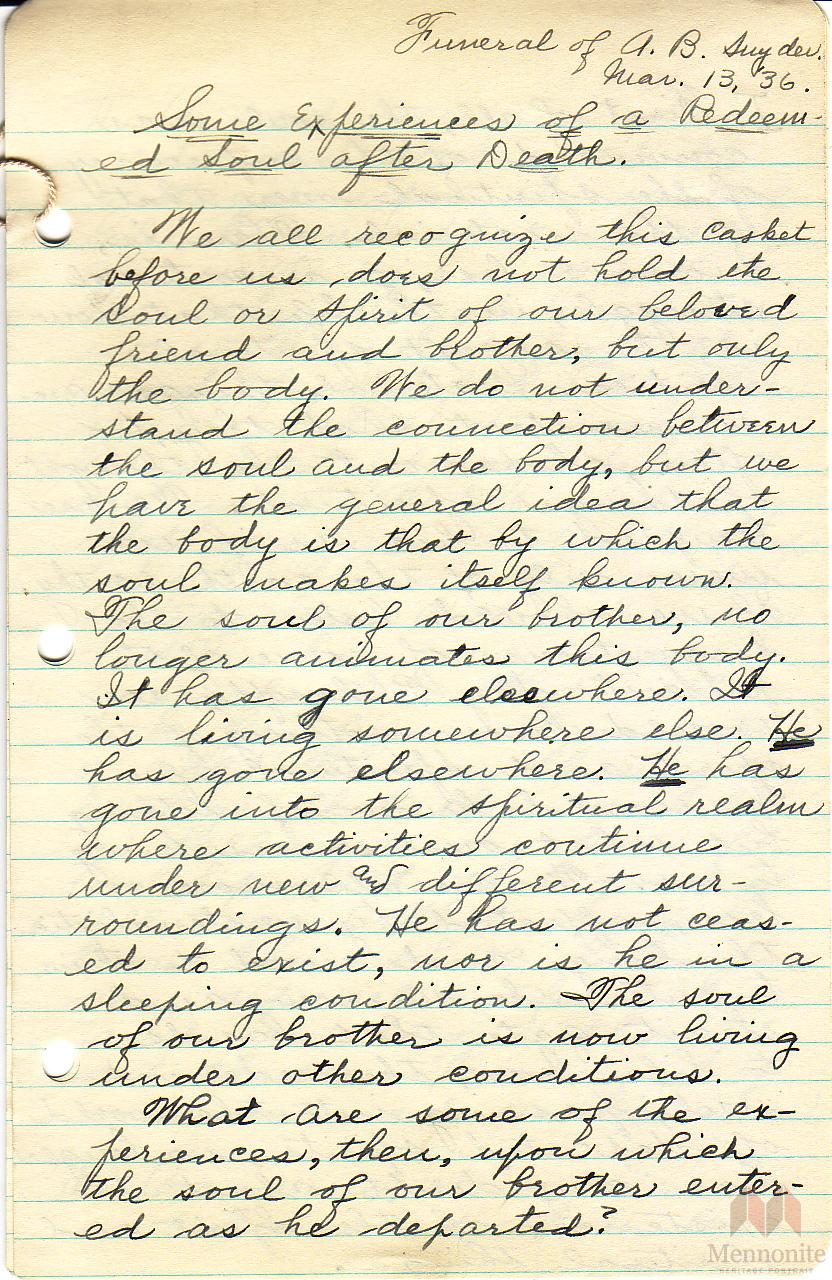 Funeral of A. B. Snyder.
Mar. 13, '36.
Some Experiences of a Redeem-
ed Soul after Death.
We all recognize this casket
before us does not hold the
soul or spirit of our beloved
friend and brother, but only
the body. We do not under-
stand the connection between
the soul and the body, but we
have the general idea that
the body is that by which the
soul makes itself known.
The soul of our brother, no
longer animates this body.
It has gone elsewhere. It
is living somewhere else. He
has gone elsewhere. He has
gone into the spiritual realm
where activities continue
under new and different sur-
roundings. He has not ceas-
ed to exist, nor is he in a
sleeping condition. The soul
of our brother is now living
under other conditions.
What are some of the ex-
periences, then, upon which
the soul of our brother enter-
ed as he departed?
Mennonite
HERITAGE PORTRAIT